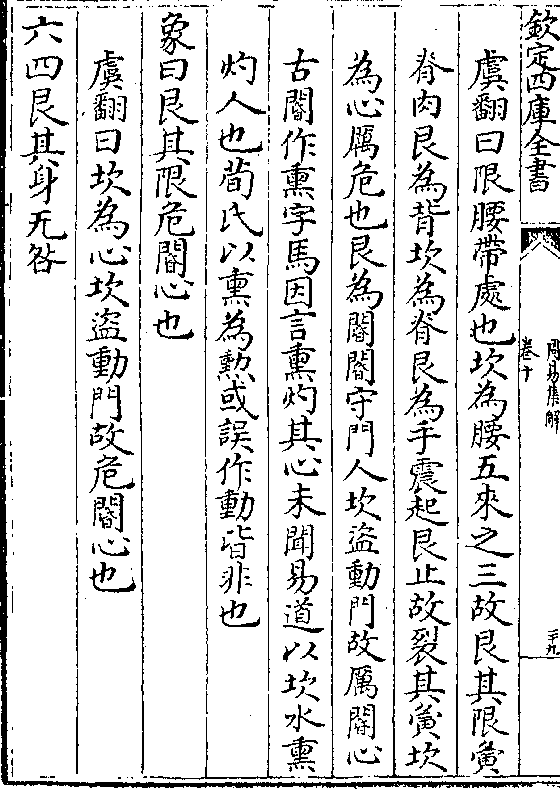 欽定四庫全書
周易集解
卷十
二十九
虞翻曰限腰帶處也坎為腰五來之三故艮其限夤
脊肉艮為背坎為脊艮為手震起艮止故裂其夤坎
為心厲危也艮為閽閽守門人坎盜動門故厲閽心
古閽作熏字馬因言熏灼其心未聞易道以坎水熏
灼人也荀氏以熏為勲或誤作動皆非也
象曰艮其限危閽心也
虞翻曰坎為心坎盜動門故危閽心也
六四艮其身无咎